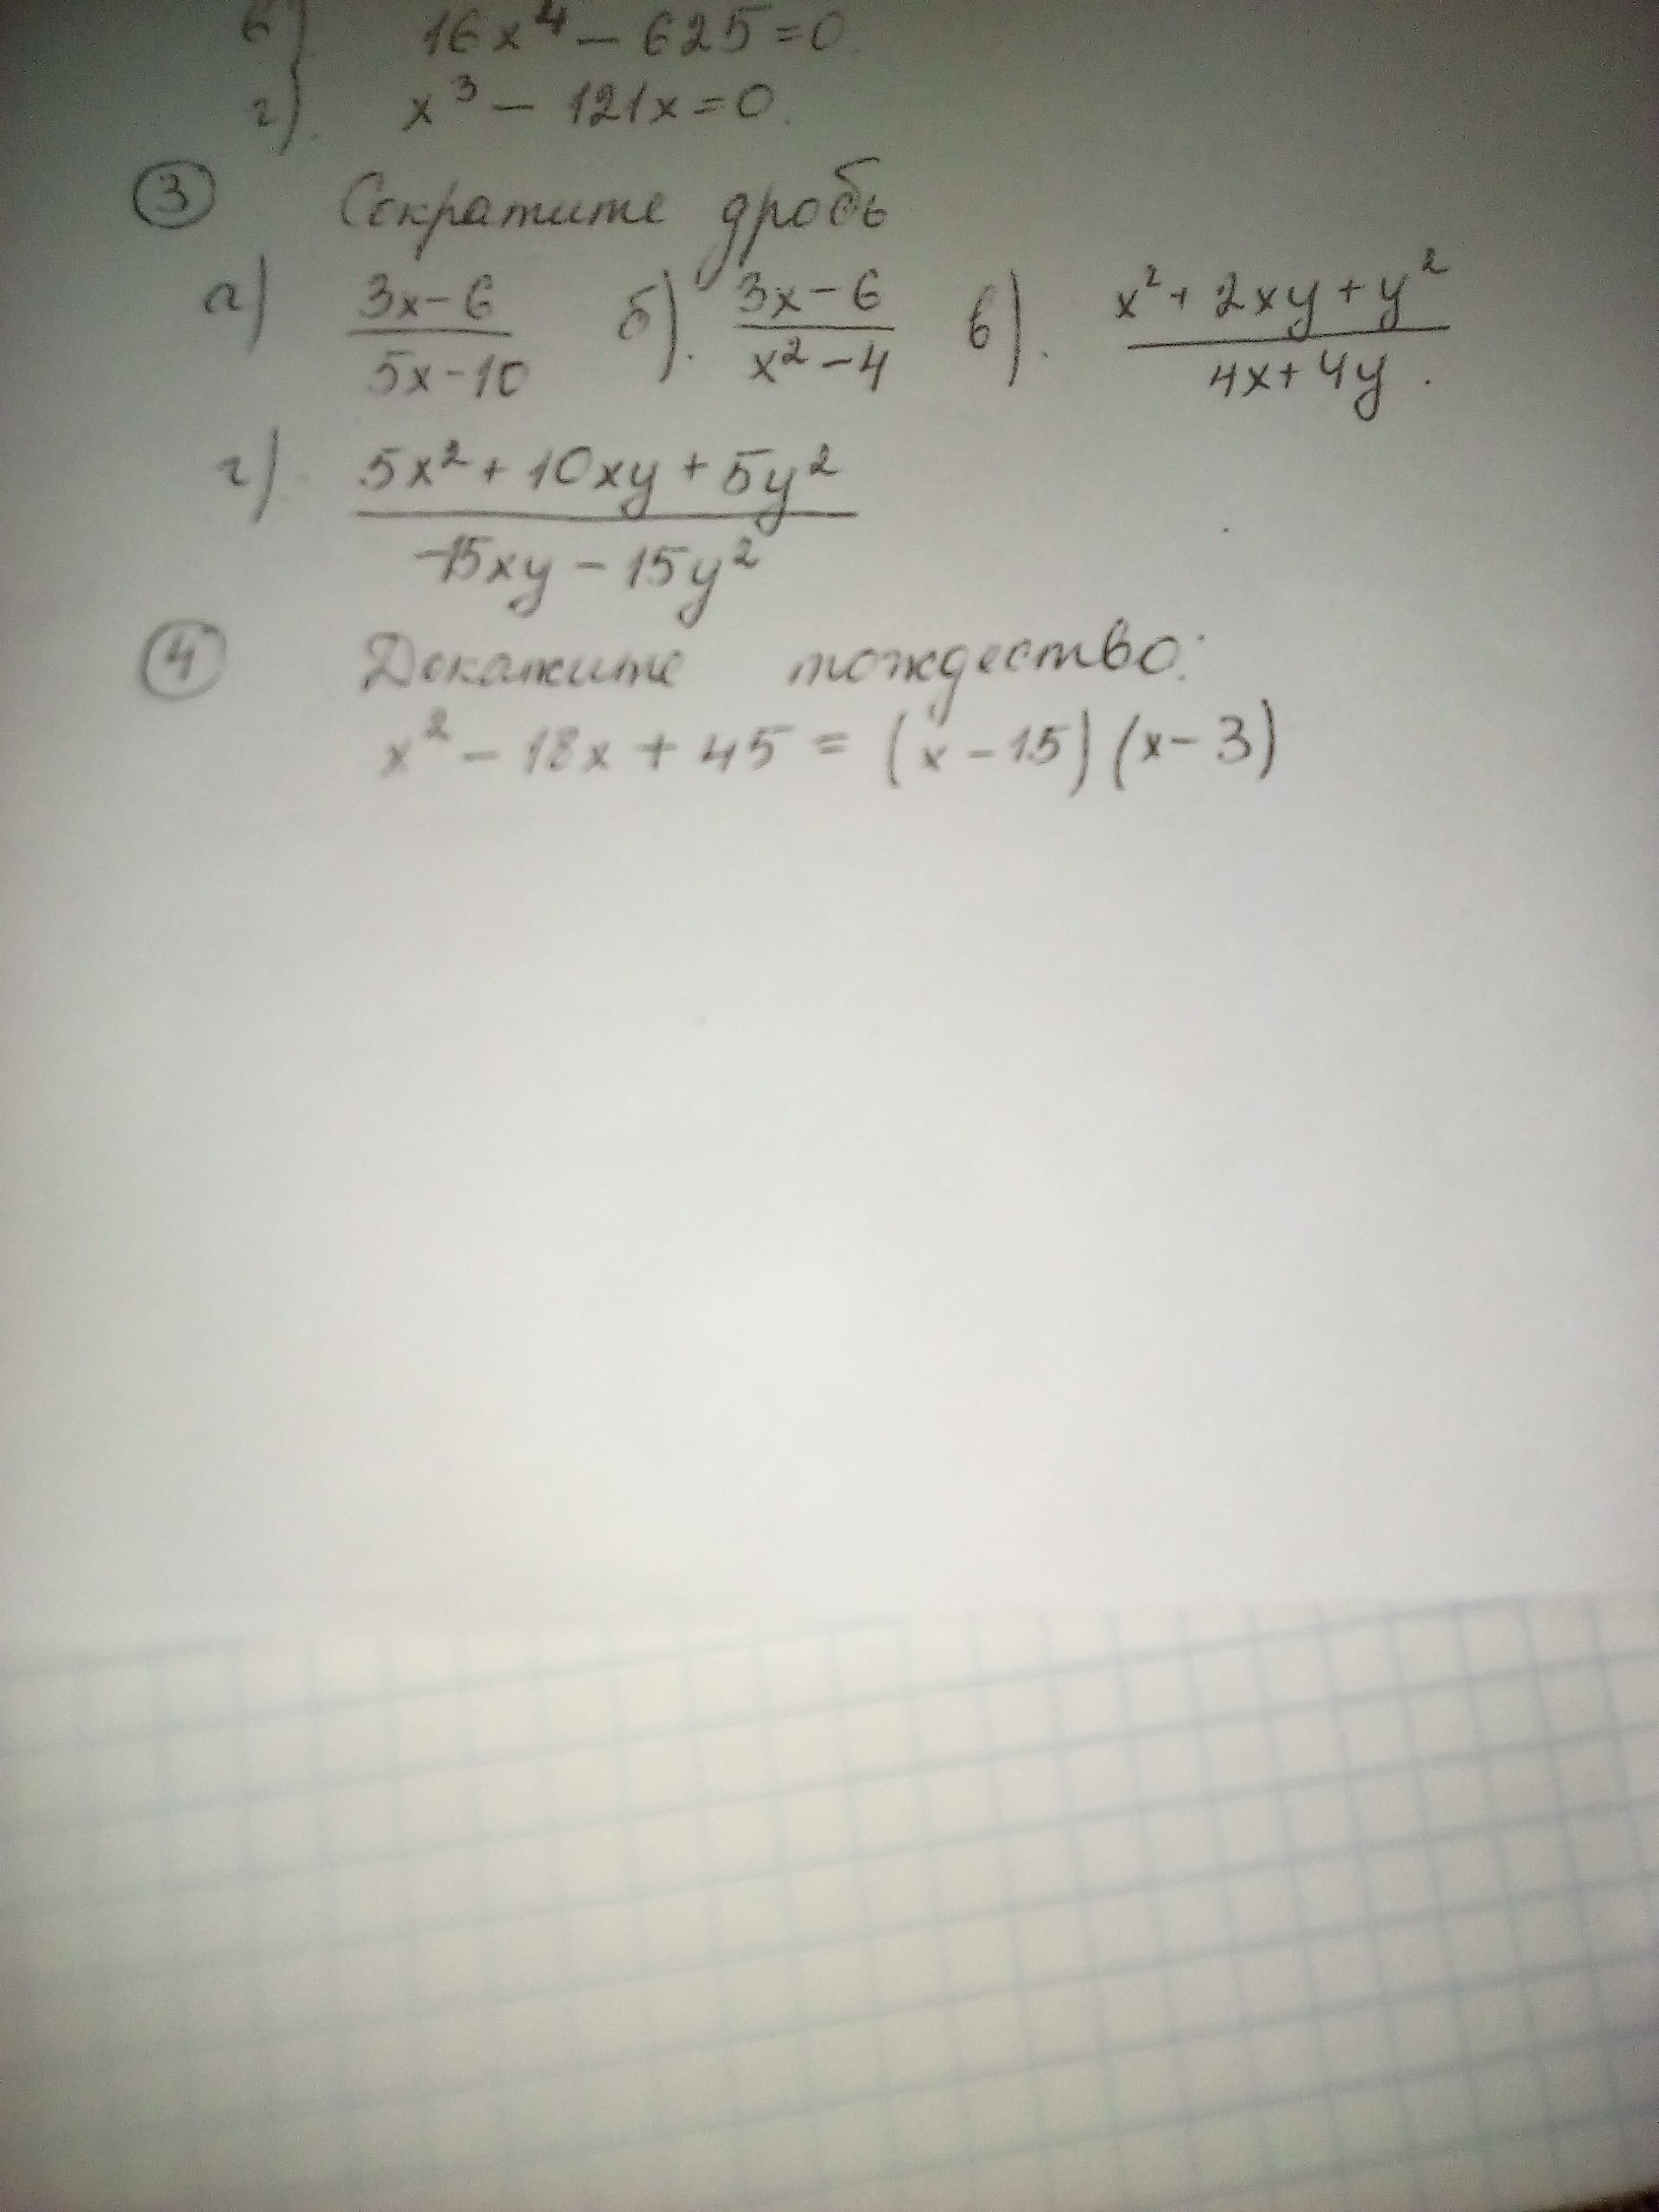 в) 16x⁴ - 625 = 0
г). x³ - 121x = 0.
③ Сократите дробь
а) (3x-6)/(5x-10) б). (3x-6)/(x²-4) в). (x²+2xy+y²)/(4x+4y).
г). (5x²+10xy+5y²)/(-15xy-15y²)
④ Докажите тождество:
x² - 18x + 45 = (x-15)(x-3)